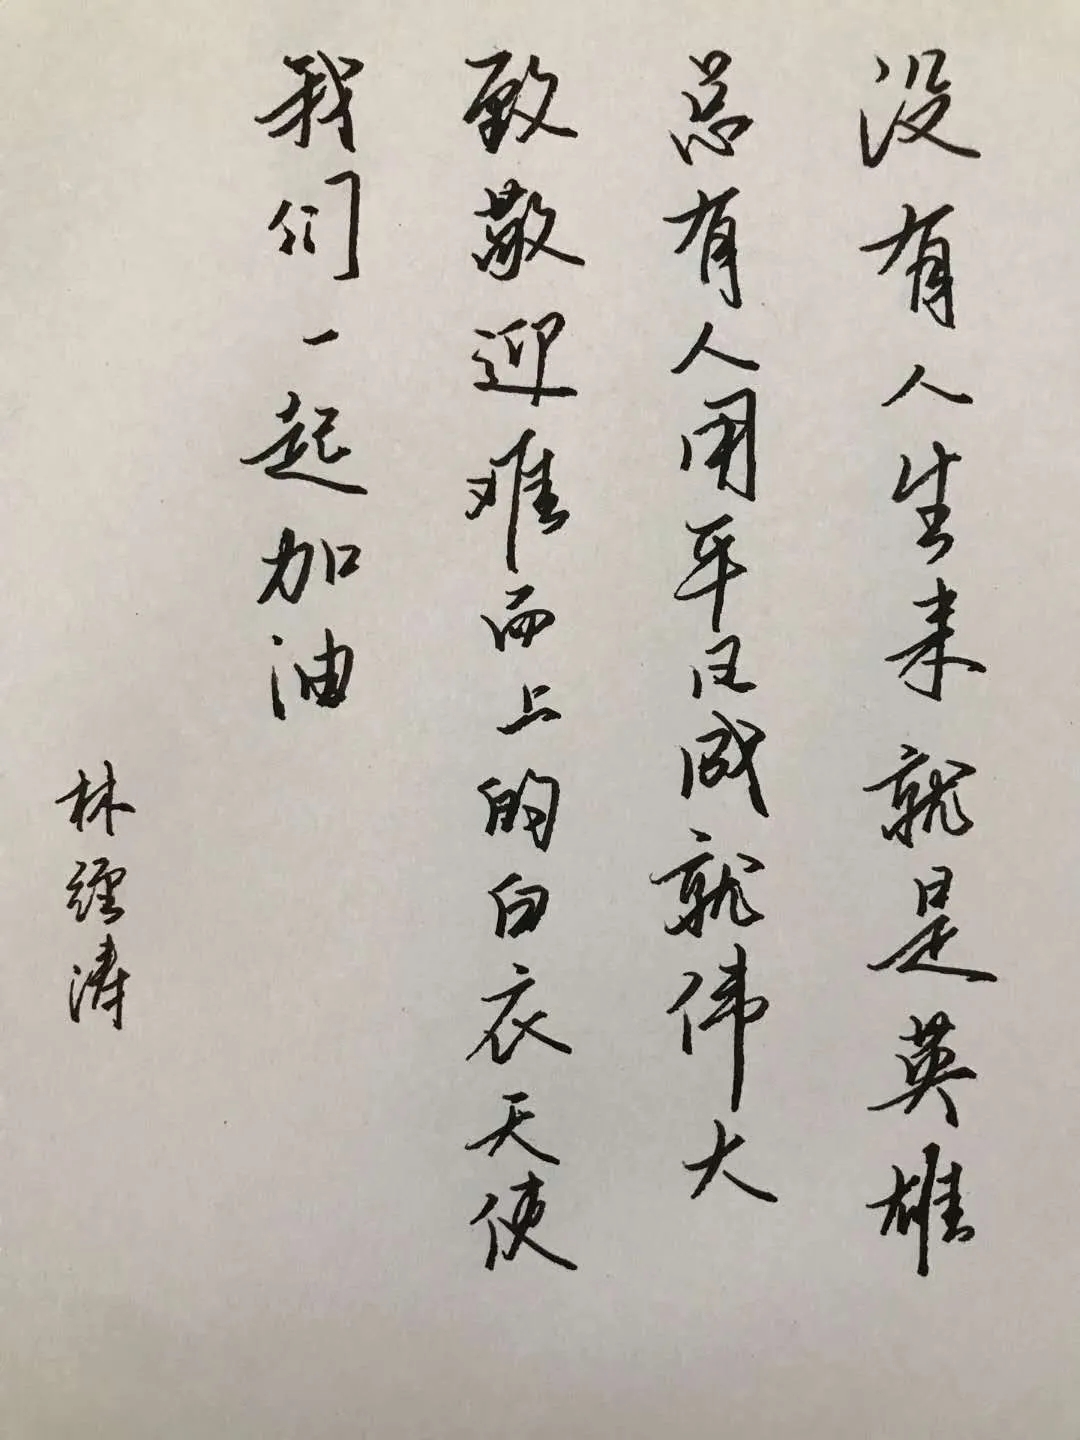 没有人生来就是英雄
总有人用平凡成就伟大
致敬迎难而上的白衣天使
我们一起加油
林经涛